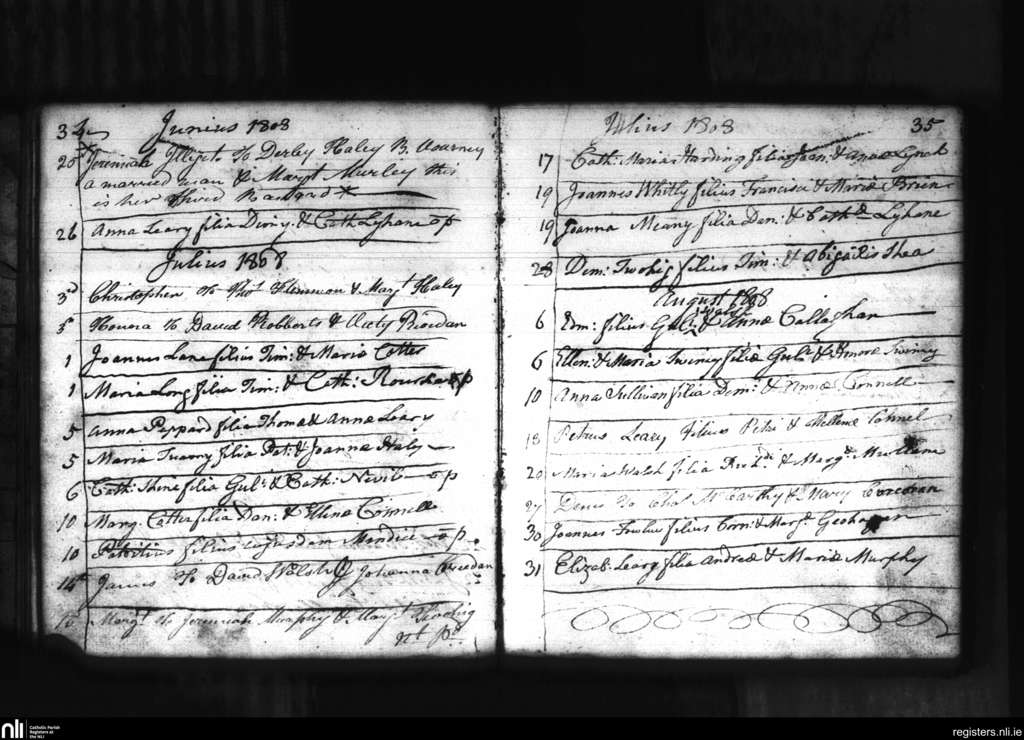 34
Junius 1808
25 Jeremiah Illegit to Derley Haley B.
a married man & Margt Murley this
is her third
26 Anna Leary filia Diony: & Cath Lyhane - op
Julius 1808
3d Christopher to Thos & Margt Haley
5 Honora to David Robberts & Riordan
1 Joannes Lane filius Tim: & Mariæ Cotter
1 Maria Long filia Tim: & Cath: Rourke op
5 Anna Peppard filia Thomæ & Annæ Leary
5 Maria filia Pat: & Joannæ Haly -
6 Cath: Shine filia Gul: & Cath: Nevil - op
10 Marg: Cotter filia Dan: & Ellenæ Connell
10 Patritius filius cujusdam Mendici - op.
14th James to David Walsh & Johanna Riordan
Margt to Jeremiah Murphy & Margt
35
Julius 1808
17 Cath: Maria Harding filia Joan: & Annæ Lynch
19 Joannes Whitly filius Francisci & Mariæ Brien
19 Joanna Meany filia Dan: & Cathæ Lyhane
28 Dem: Twohig filius Tim: & Abigailis Shea
August 1808
6 Edm: filius Gul: & Annæ Callaghan
6 Ellen: & Maria Swiney filiæ Gul: & Swiney
10 Anna Sullivan filia Dem: & Annæ Connell
18 Petrus Leary filius Petri & Hellenæ Connel
20 Maria Walsh filia & Margt Mullane
27 Denis to Chas McCarthy & Mary Corcoran
30 Joannes filius Corn: & Margt Geohagan
31 Elizab: Leary filia Andreæ & Mariæ Murphy
nli
Catholic Parish
Registers at
the NLI
registers.nli.ie